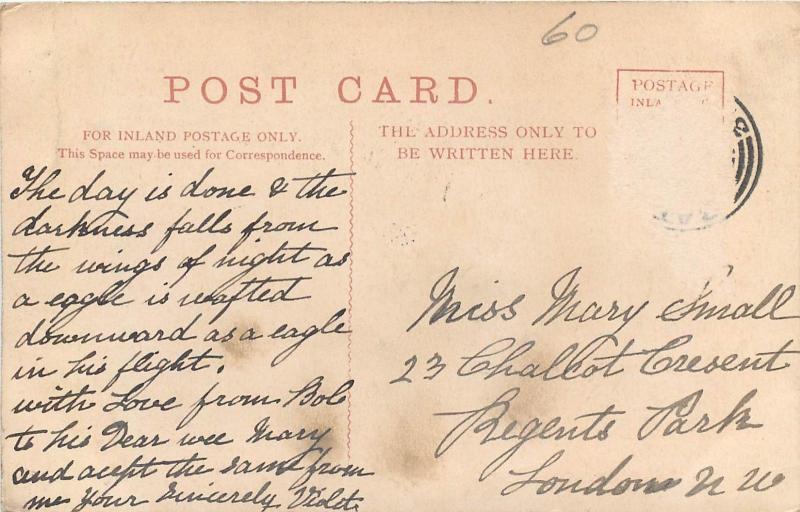 60
POST CARD.
POSTAGE
INLA
FOR INLAND POSTAGE ONLY.
This Space may be used for Correspondence.
THE ADDRESS ONLY TO
BE WRITTEN HERE
The day is done & the
darkness falls from
the wings of night as
a eagle is wafted
downward as a eagle
in his flight.
with Love from Bob
to his Dear wee Mary
and acept the same from
me Your Sincerely Violet
Miss Mary Small
23 Challcot Cresent
Regents Park
London N W